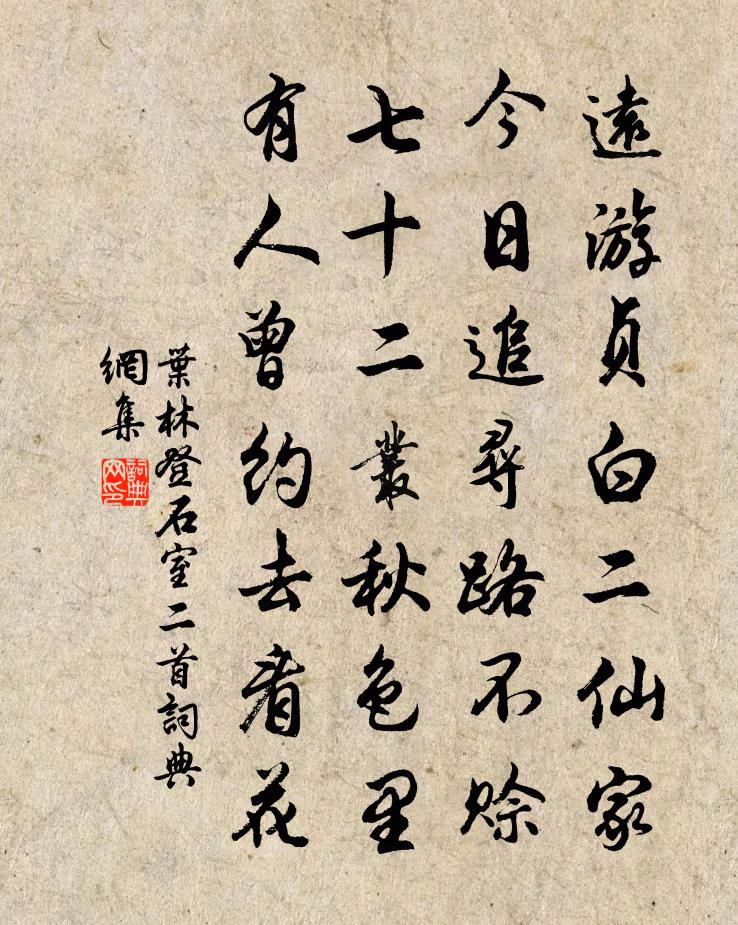 遠游貞白二仙家
今日追尋路不賒
七十二叢秋色里
有人曾約去看花
葉林登石室二首詞典
網集
詞典
网印